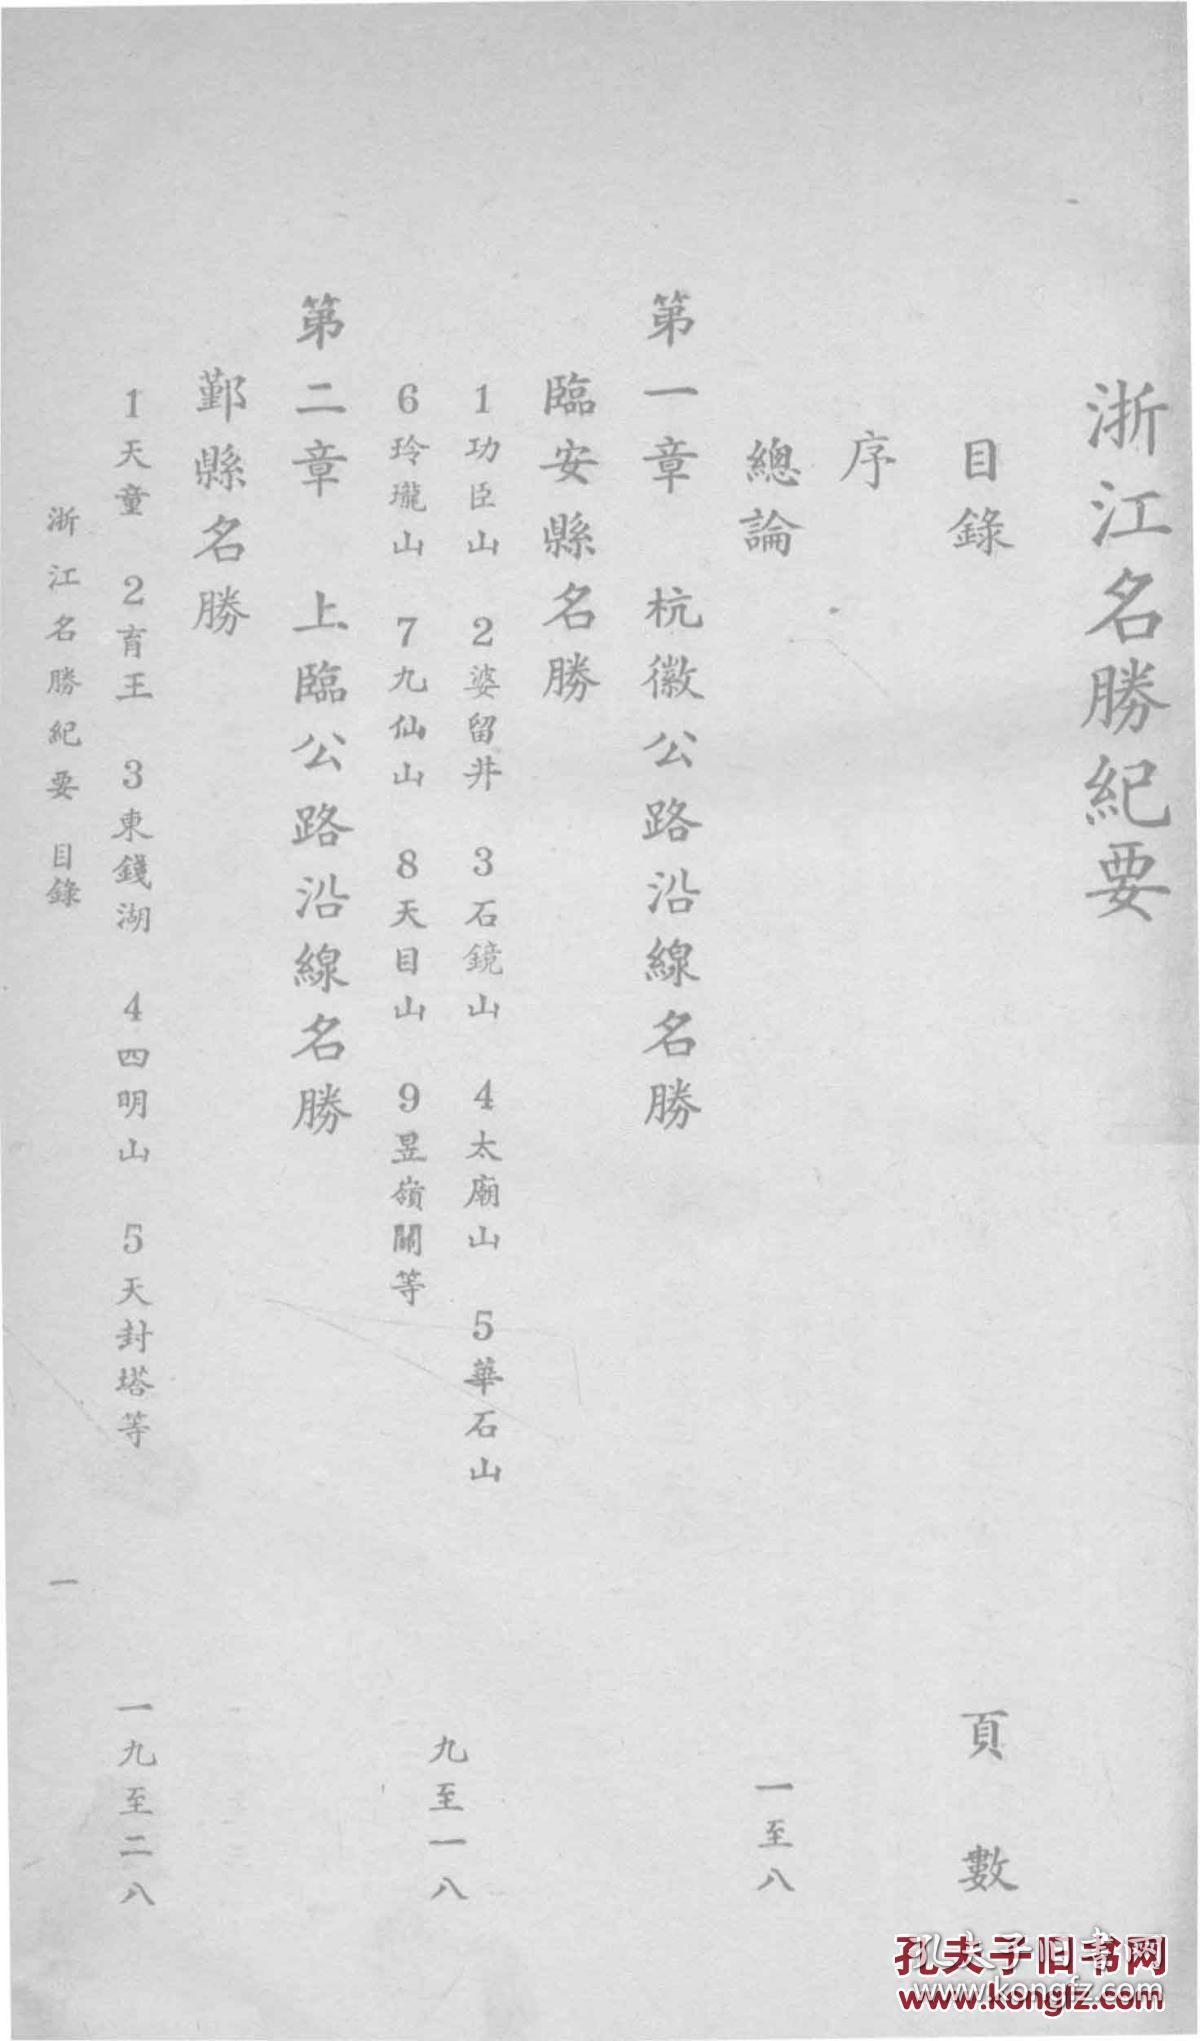 浙江名勝紀要
目錄　頁數
序
總論　一至八
第一章　杭徽公路沿線名勝
臨安縣名勝
1功臣山　2婆留井　3石鏡山　4太廟山　5華石山
6玲瓏山　7九仙山　8天目山　9昱嶺關等　九至一八
第二章　上臨公路沿線名勝
鄞縣名勝
1天童　2育王　3東錢湖　4四明山　5天封塔等　一九至二八
浙江名勝紀要　目錄　一
孔夫子旧书网
www.kongfz.com